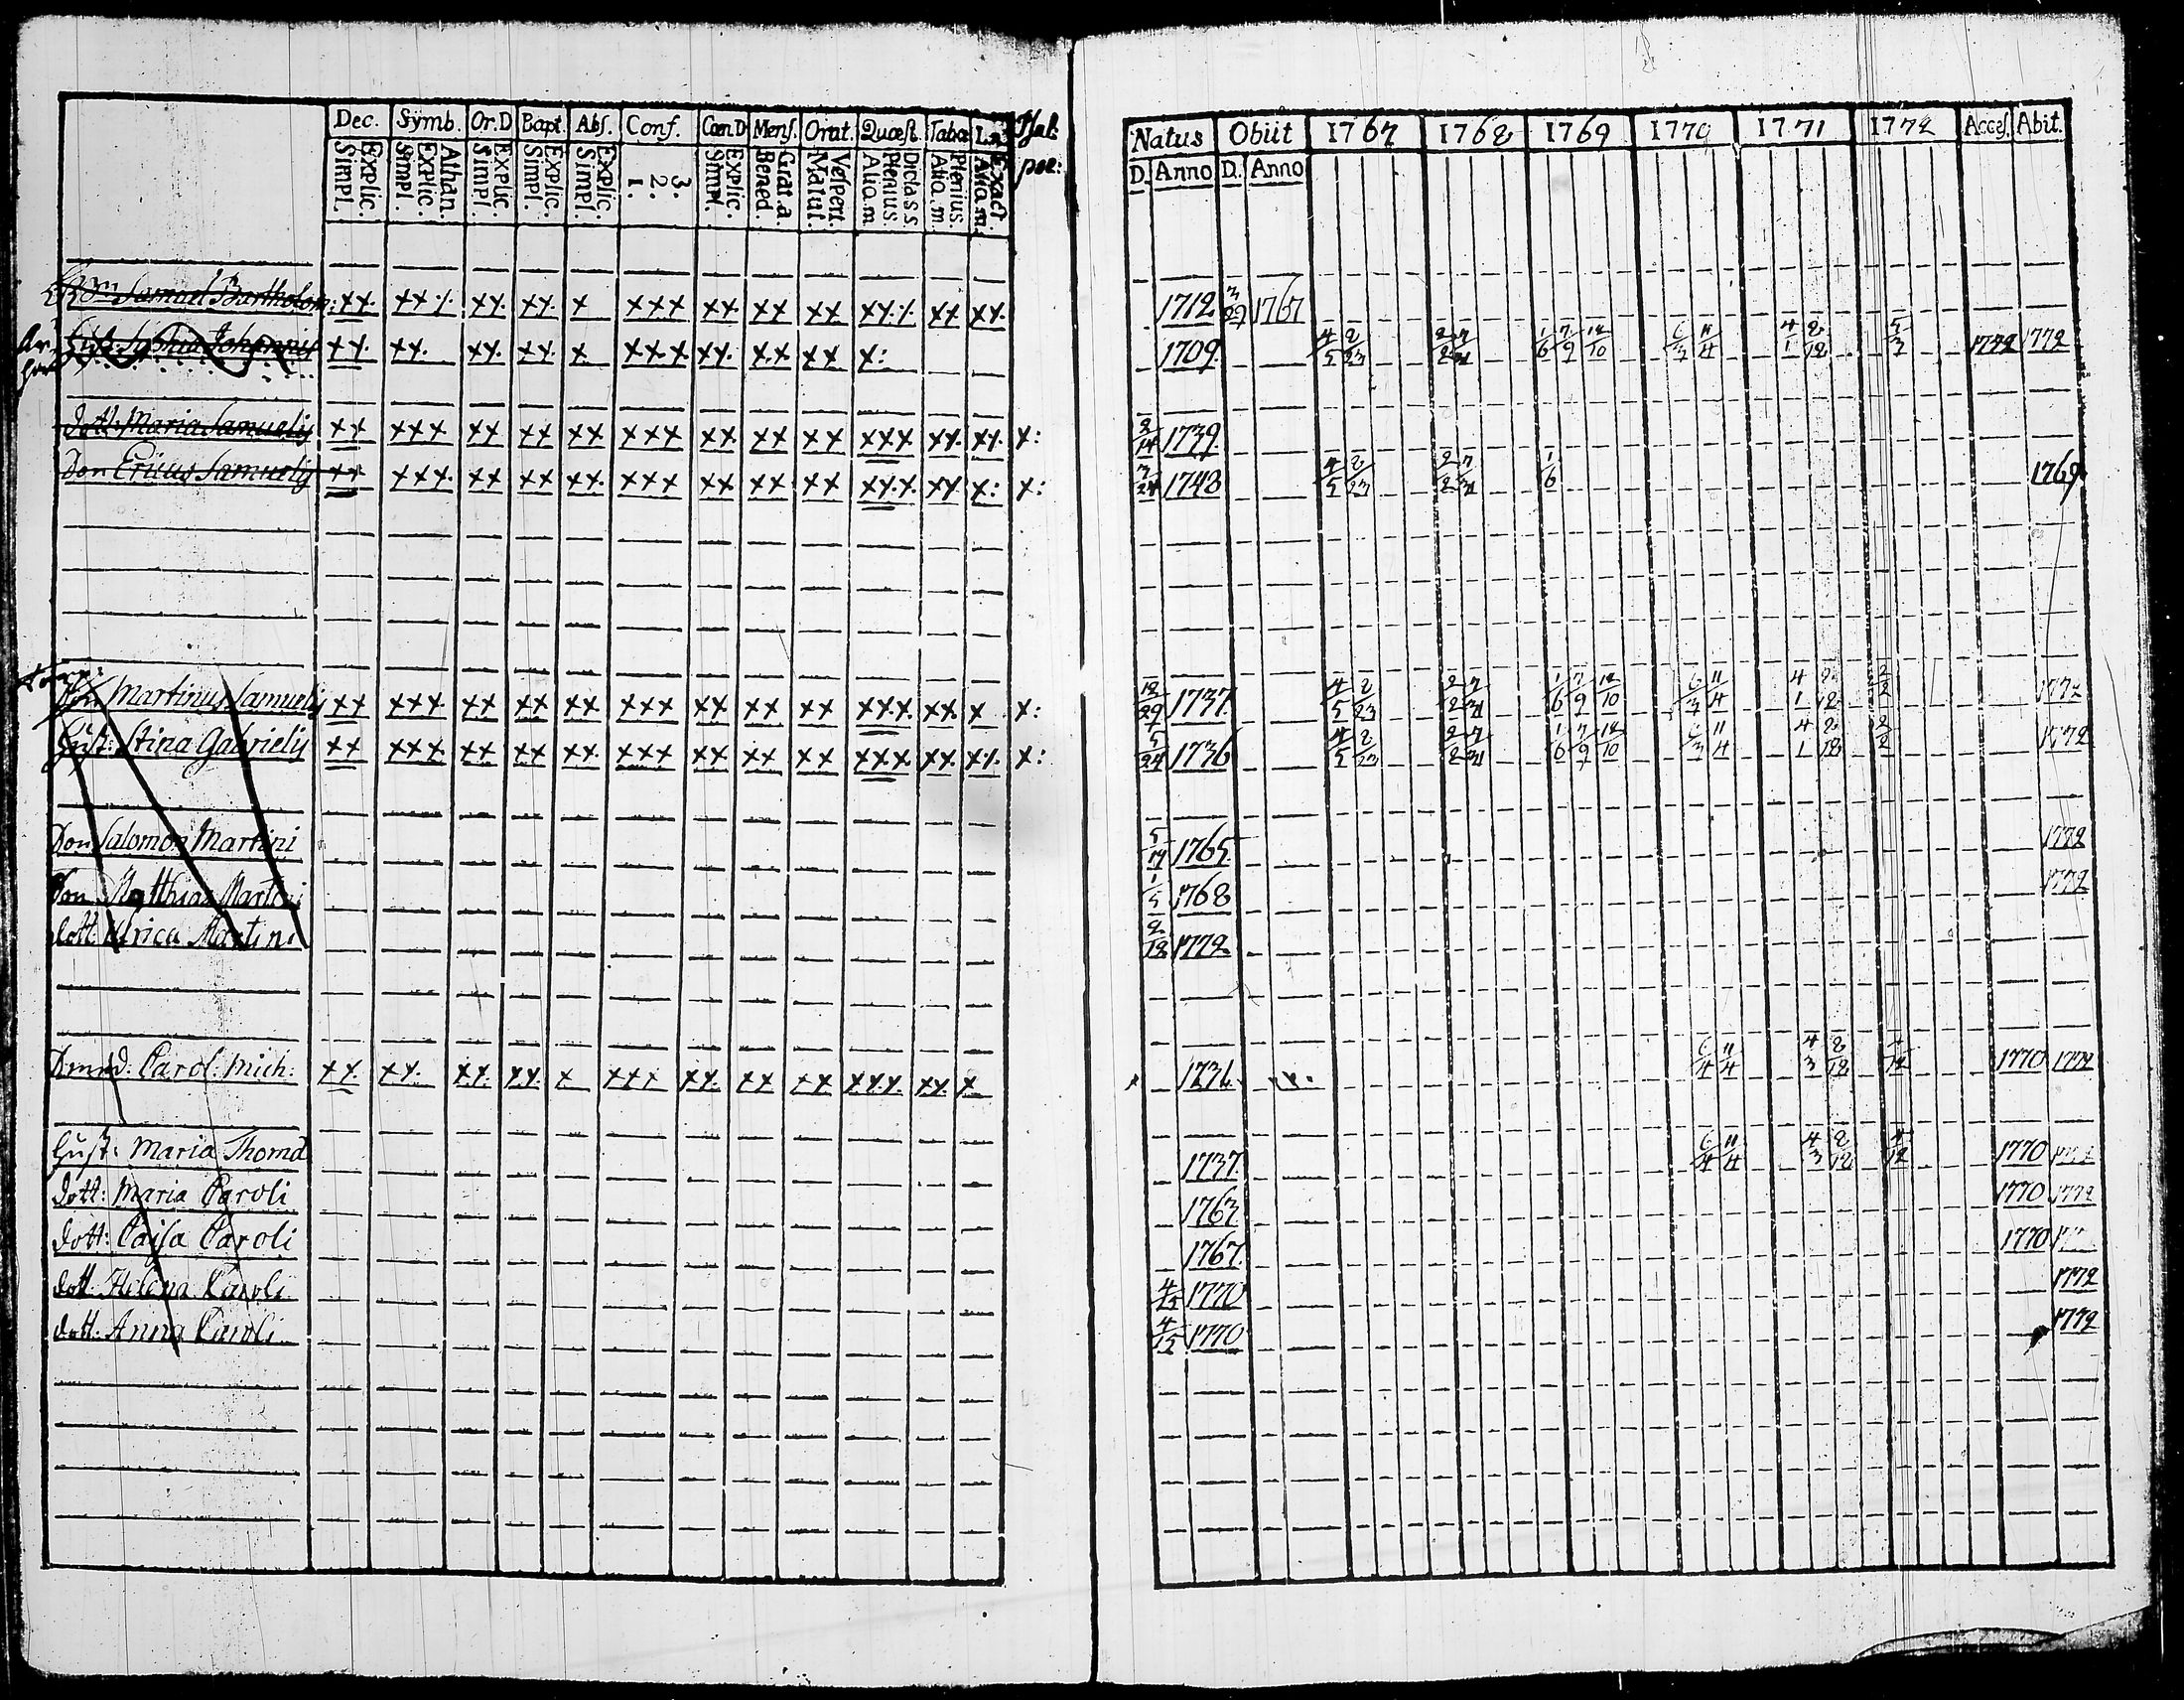 Dec. Symb. Or.D Bapt. Abs. Conf. Cœn.D Mens. Orat. Quæst. Tabœ
Natus Obiit 1767 1768 1769 1770 1771 1772 Acces. Abit.
Explic. Simpl. Athan. Explic. Simpl. Explic. Simpl. Explic. Simpl. Explic. Simpl. 3. 2. 1. Explic. Simpl. Grat. a Bened. Vespert. Matut. Dicta s s Plenius. Aliq. m Plenius. Aliq. m. Exact. Aliq. m.
D. Anno D. Anno
Samuel Bartholom: xx. xx% xx. xx. x xxx xx. xx xx xx% xx xx. 1712 3/29 1767
Johannis xx. xx. xx. xx. x xxx xx. xx xx x: 1709. 4/5 8/23 1/6 7/9 12/10 6/3 11/4 4/1 8/18 1772 1772
dott: Maria Samuelis xx xxx xx xx xx xxx xx. xx xx xxx xx. xx. x: 1739.
Son Ericus Samuelis xx xxx. xx xx xx. xxx xx xx. xx xx.x. xx. x: x: 1748 4/5 8/23 1/6 1769.
Martinus Samuelis xx xxx xx xx xx xxx xx xx xx xx.x. xx. x x: 12/29 1737. 4/5 8/23 1/6 7/9 12/10 6/3 11/4 4/1 8/18 2/2 1772
Hust: Stina Gabrielis xx xxx. xx xx xx. xxx xx xx xx xxx xx. xx. x: 5/24 1736 4/5 8/23 1/6 7/9 12/10 6/3 11/4 4/1 8/18 2/2 1772
Son Salomon Martini 1765. 1772
Son Matthias Martini 1/5 1768 1772
dott. Ulrica Martini 2/18 1772
Carol: Mich: xx. xx. xx. xx. x xxx xx. xx xx xxx xx. x 6/4 11/4 4/3 8/18 1770 1772
Hust: Maria Thomæ 1737. 6/4 11/4 4/3 8/18 4/12 1770
dott: Maria Caroli 1763. 1770 1772
dott: Caisa Caroli 1767. 1770
dott. Helena Caroli 1770 1772
dott: Anna Caroli 4/15 1770 1772